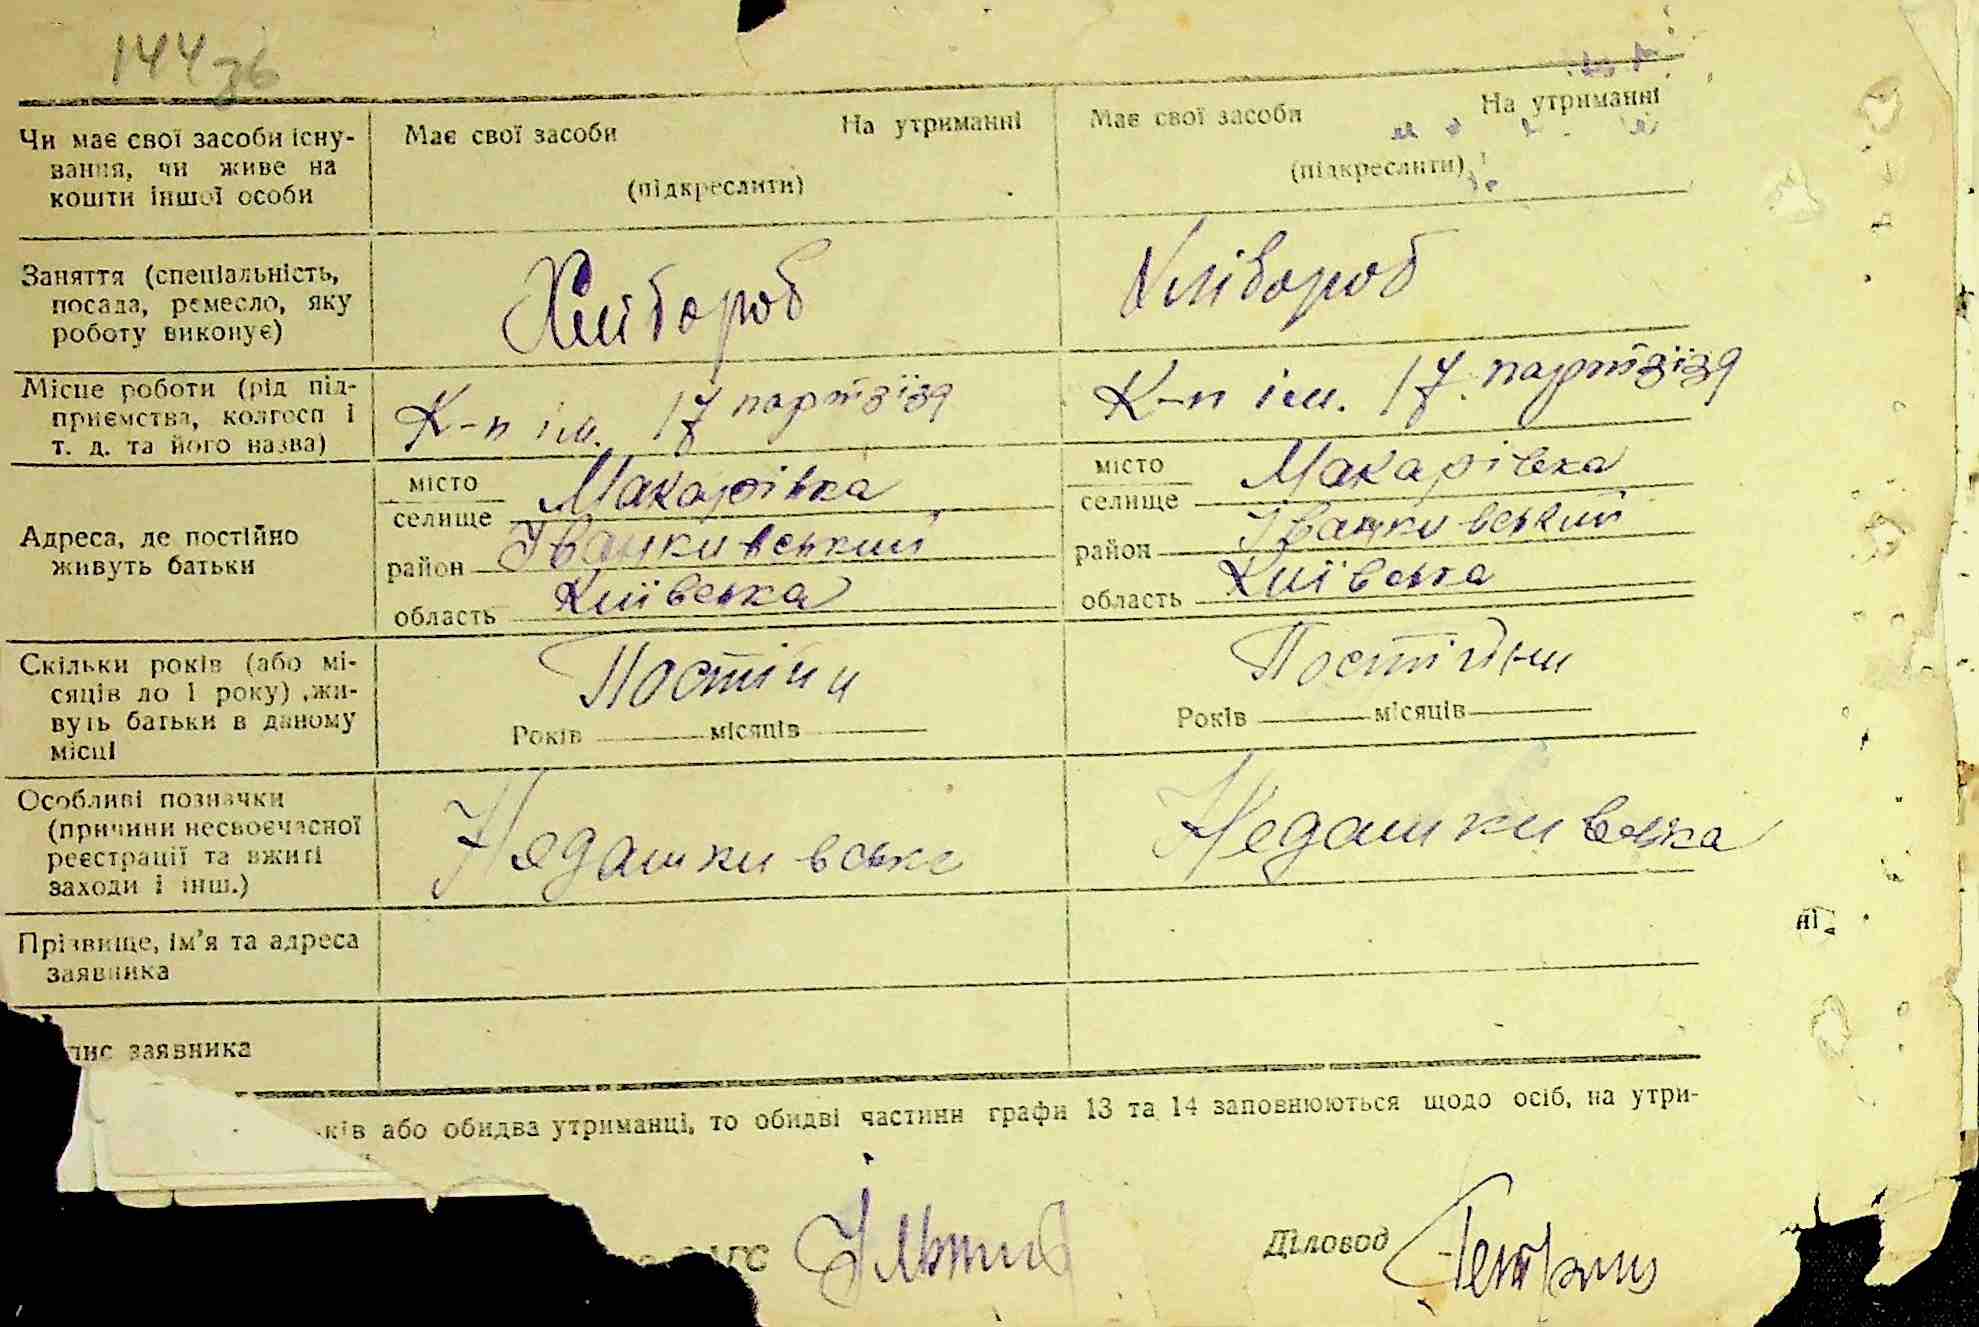 144 зб
Чи має свої засоби існу-
вання, чи живе на
кошти іншої особи
Має свої засоби На утриманні
(підкреслити)
Має свої засоби На утриманні
(підкреслити)
Заняття (спеціальність,
посада, ремесло, яку
роботу виконує)
Хлібороб
Хлібороб
Місце роботи (рід під-
приємства, колгосп і
т. д. та його назва)
К-п ім. 17 партзїзд
К-п ім. 17 партзїзд
Адреса, де постійно
живуть батьки
місто
селище Макарівка
район Іванкивський
область Київська
місто
селище Макарівка
район Іванкивський
область Київська
Скільки років (або мі-
сяців до 1 року) жи-
вуть батьки в даному
місці
Постійни
Років місяців
Постійни
Років місяців
Особливі позначки
(причини несвоєчасної
реєстрації та вжиті
заходи і інш.)
Недашкивське
Недашкивська
ні.
Прізвище, ім'я та адреса
заявника
пис заявника
ків або обидва утриманці, то обидві частини графи 13 та 14 заповнюються щодо осіб, на утри-
Діловод